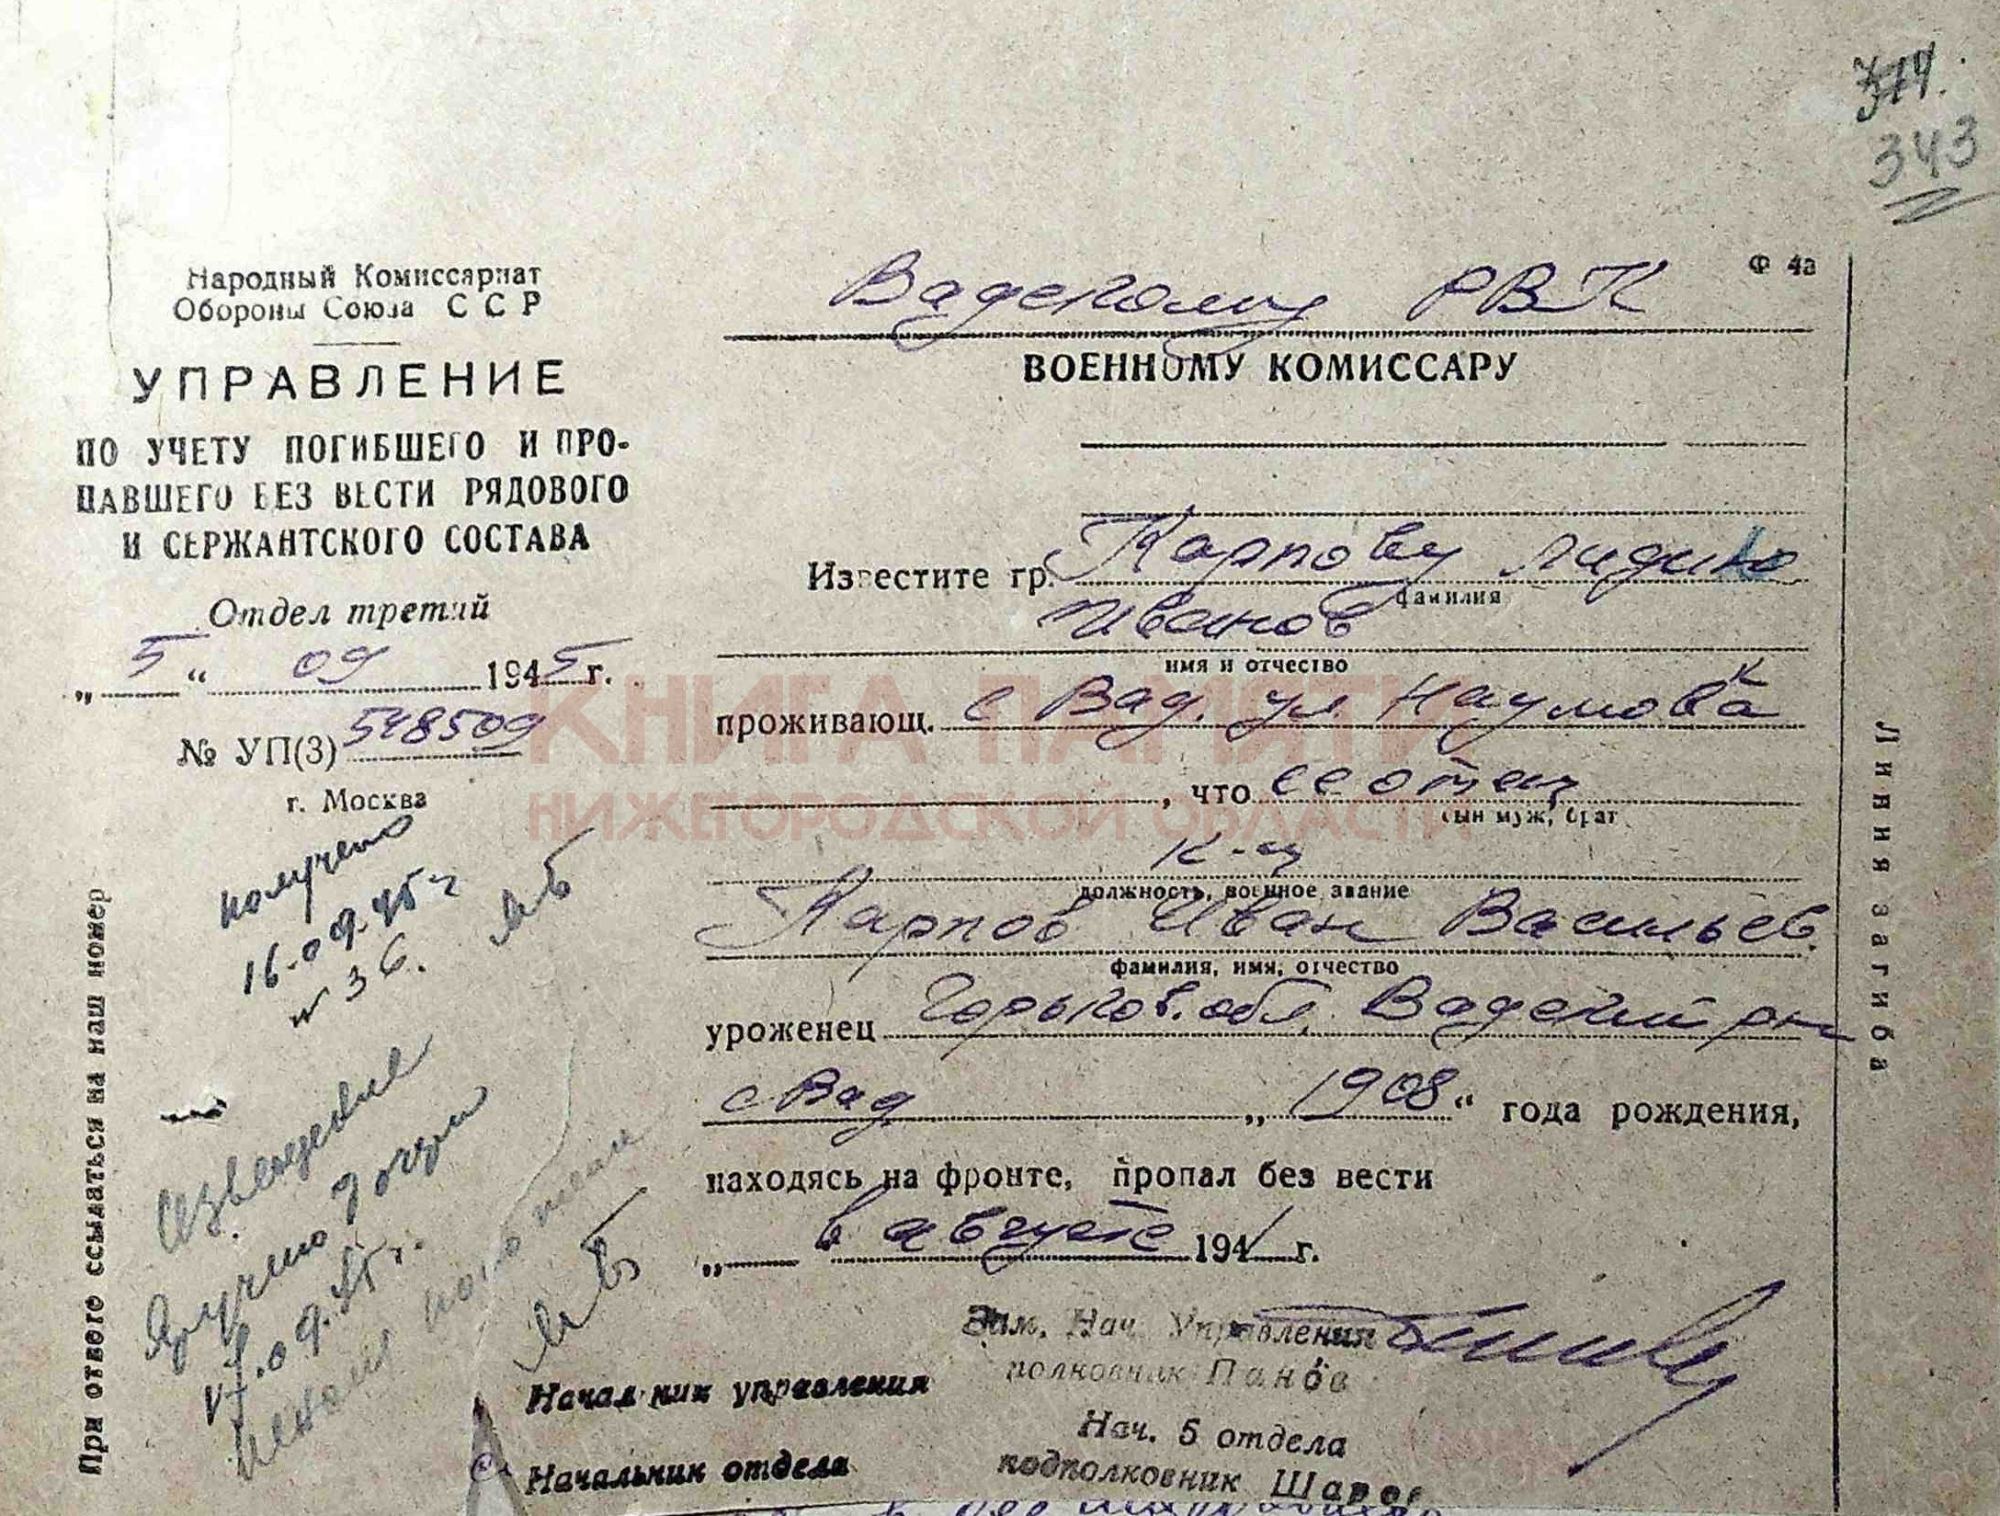 714.
343
Народный Комиссариат
Обороны Союза ССР
УПРАВЛЕНИЕ
ПО УЧЕТУ ПОГИБШЕГО И ПРО-
ПАВШЕГО БЕЗ ВЕСТИ РЯДОВОГО
И СЕРЖАНТСКОГО СОСТАВА
Отдел третий
„ 5 “ 09 1945 г.
№ УП(3) 548509
г. Москва
получено
16-09-45 г
№ 36.
Извещение
вручено дочери
17.09.45 г.
При ответе ссылаться на наш номер
Ф 4а
Вадскому РВК
ВОЕННОМУ КОМИССАРУ
Известите гр. Карпову Лидию
фамилия
Иванов
имя и отчество
проживающ. с Вад. ул Наумовка
, что ее отец
сын муж, брат
к-ц
должность, военное звание
Карпов Иван Васильев.
фамилия, имя, отчество
уроженец Горьков. обл. Вадский р-н
с Вад „ 1908 “ года рождения,
находясь на фронте, пропал без вести
„ в августе 1941 г.
Зам. Нач. Управления
полковник Панов
Начальник управления
Нач. 5 отдела
подполковник Шаро
Начальник отдела
Линия загиба
КНИГА ПАМЯТИ
НИЖЕГОРОДСКОЙ ОБЛАСТИ